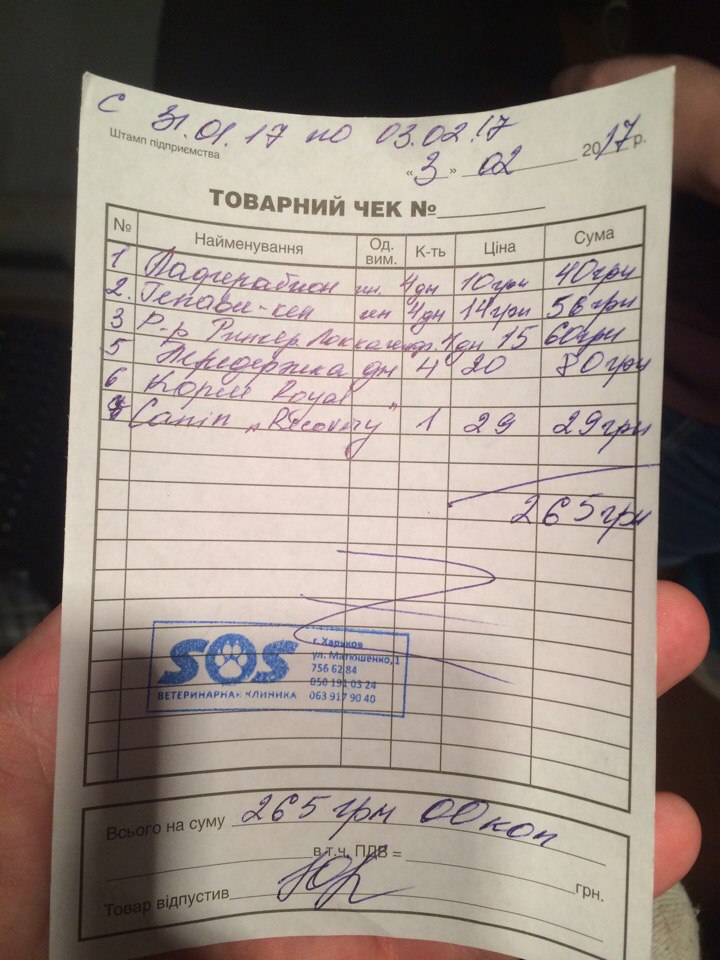 с 31.01.17 по 03.02.17
Штамп підприємства
«3» 02 2017р.
ТОВАРНИЙ ЧЕК №
№ Найменування Од. вим. К-ть Ціна Сума
1 ин. 4дн 10грн 40грн
2. ин 4дн 14грн 56грн
3 Р-р Рингер Локка 4дн 15 60грн
5 Передержка дн 4 20 80грн
6 Корм Royal
7 Canin „Recovery" 1 29 29грн
265грн
SOS
ВЕТЕРИНАРНАЯ КЛИНИКА
г. Харьков
ул. Матюшенко,1
756 62 84
050 191 03 24
063 917 90 40
Всього на суму 265грн 00коп
в.т.ч. ПДВ = грн.
Товар відпустив